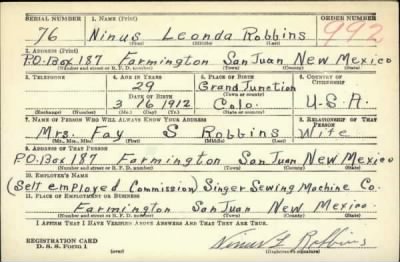 SERIAL NUMBER 1. NAME (Print) ORDER NUMBER
76 Ninus Leonda Robbins 992
(First) (Middle) (Last)
2. ADDRESS (Print)
P.O. Box 187 Farmington San Juan New Mexico
(Number and street or R. F. D. number) (Town) (County) (State)
3. TELEPHONE 4. AGE IN YEARS 5. PLACE OF BIRTH 6. COUNTRY OF CITIZENSHIP
29 Grand Junction
DATE OF BIRTH (Town or county)
3 16 1912 Colo. U.S.A.
(Exchange) (Number) (Mo.) (Day) (Yr.) (State or country)
7. NAME OF PERSON WHO WILL ALWAYS KNOW YOUR ADDRESS 8. RELATIONSHIP OF THAT PERSON
Mrs. Fay S Robbins Wife
(Mr., Mrs., Miss) (First) (Middle) (Last)
9. ADDRESS OF THAT PERSON
P.O. Box 187 Farmington San Juan New Mexico
(Number and street or R. F. D. number) (Town) (County) (State)
10. EMPLOYER'S NAME
(Self employed Commission) Singer Sewing Machine Co.
11. PLACE OF EMPLOYMENT OR BUSINESS
Farmington San Juan New Mexico.
(Number and street or R. F. D. number) (Town) (County) (State)
I AFFIRM THAT I HAVE VERIFIED ABOVE ANSWERS AND THAT THEY ARE TRUE.
REGISTRATION CARD
D. S. S. Form 1 (over) Ninus L Robbins
(Registrant's signature)